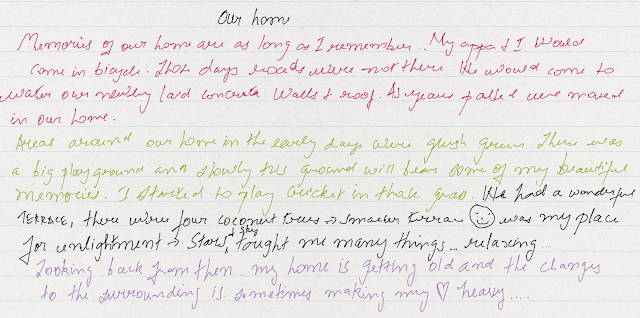 Our home
Memories of our home are as long as I remember.. My appa & I would
come in bicycle. That days roads were not there We would come to
water our newly laid concrete walls & roof. As years passed we moved
in our home.
Areas around our home in the early days were glush green There was
a big playground and slowly this ground will bear some of my beautiful
memories. I started to play cricket in those gras. We had a wonderful
TERRACE, there were four coconut trees → smaller terrace was my place
for enlightment → Stars & sky tought me many things.. relaxing...
Looking back from then.. my home is getting old and the changes
to the surrounding is sometimes making my ♡ heavy.....